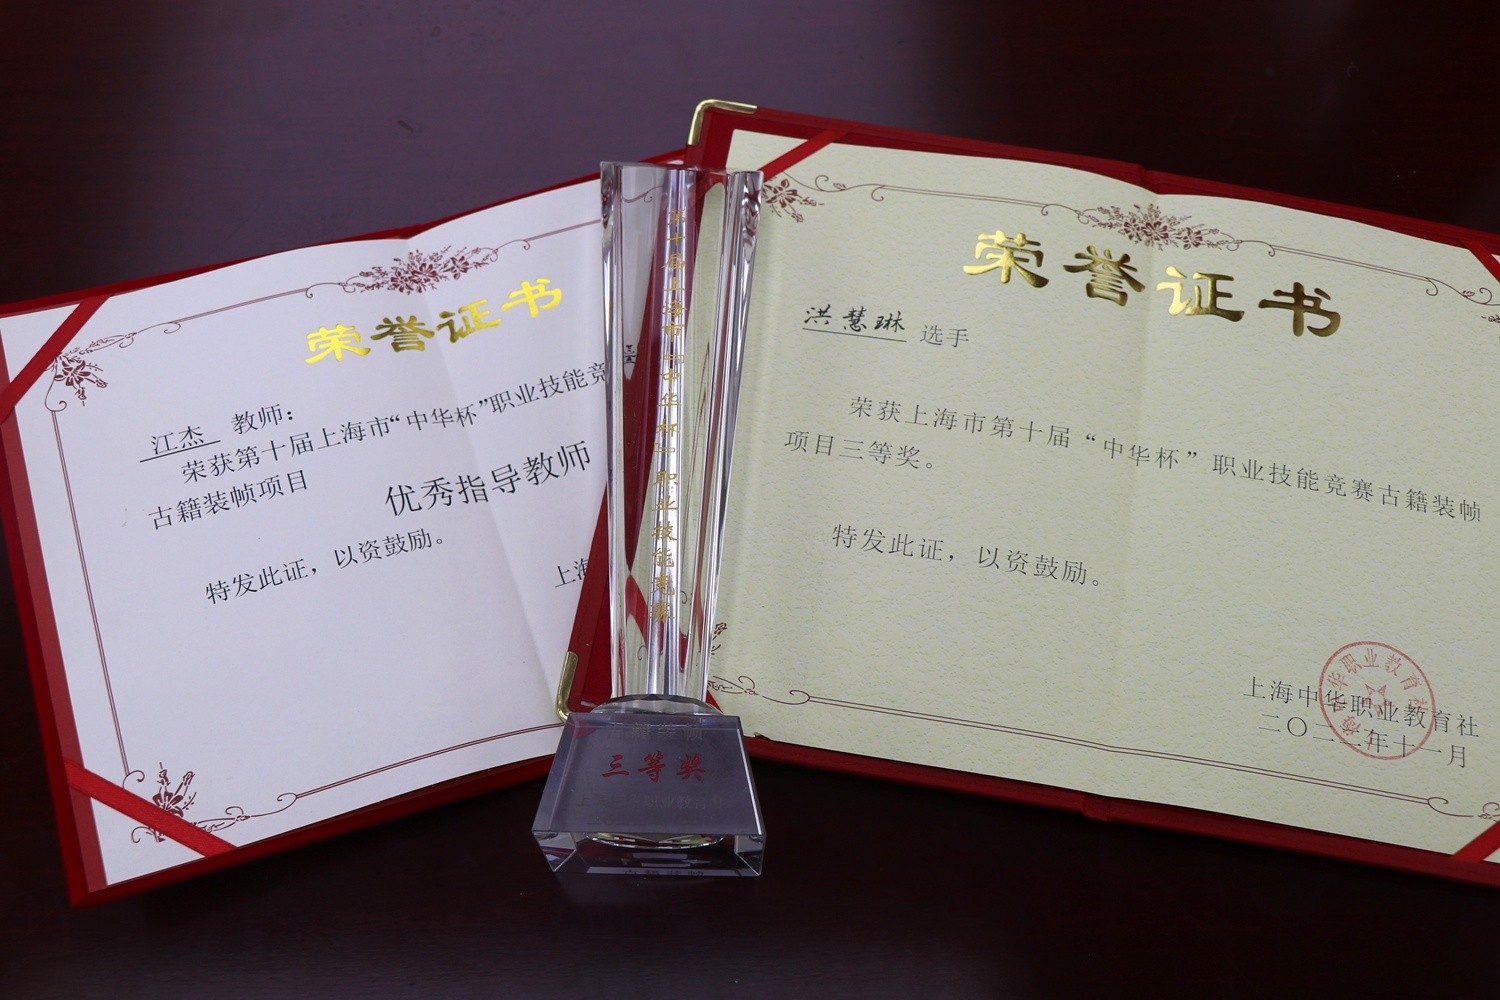 荣誉证书
江杰 教师：
荣获第十届上海市“中华杯”职业技能竞
古籍装帧项目
优秀指导教师
特发此证，以资鼓励。
上海
第十届上海市“中华杯”职业技能竞赛
三等奖
荣誉证书
洪慧琳 选手
荣获上海市第十届“中华杯”职业技能竞赛古籍装帧
项目三等奖。
特发此证，以资鼓励。
上海中华职业教育社
年十一月